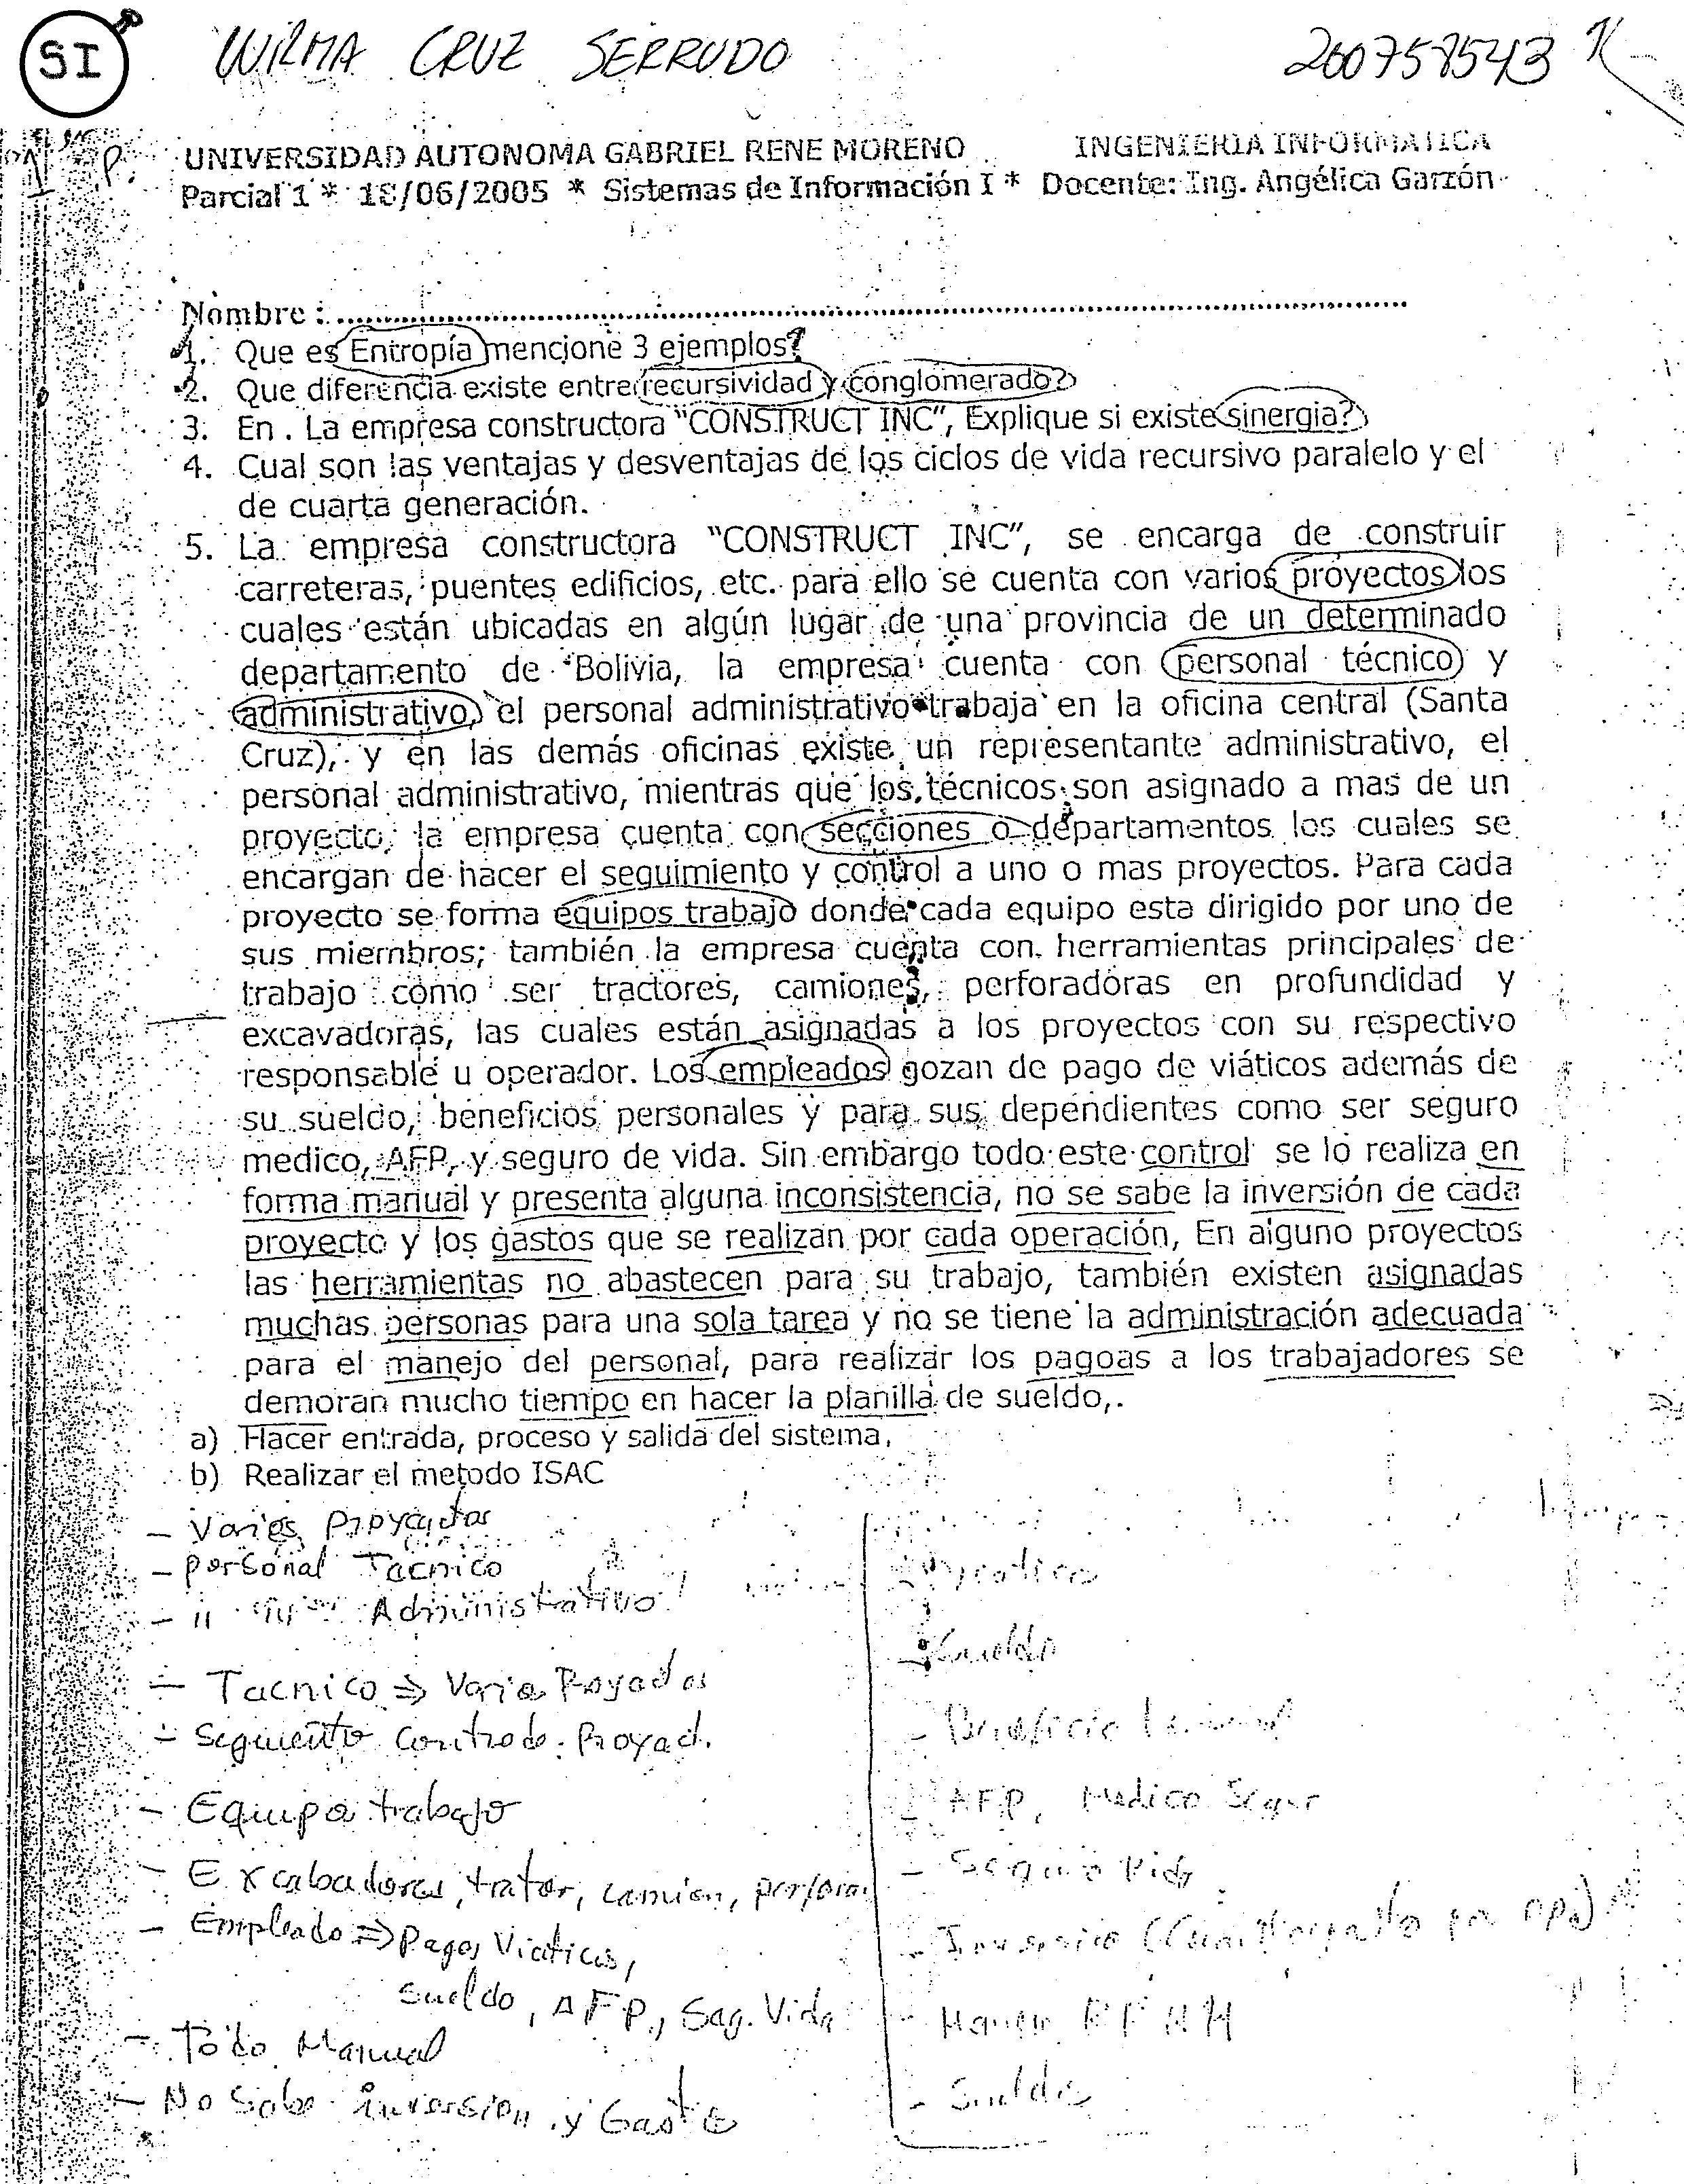 SI
WILMA CRUZ SERRUDO
200757543
UNIVERSIDAD AUTONOMA GABRIEL RENE MORENO INGENIERIA INFORMATICA
Parcial 1 * 18/06/2005 * Sistemas de Información I * Docente: Ing. Angélica Garzón
Nombre :
1. Que es Entropía mencione 3 ejemplos?
2. Que diferencia existe entre recursividad y conglomerado?
3. En . La empresa constructora "CONSTRUCT INC", Explique si existe sinergia?
4. Cual son las ventajas y desventajas de los ciclos de vida recursivo paralelo y el
de cuarta generación.
5. La empresa constructora "CONSTRUCT INC", se encarga de construir
carreteras, puentes edificios, etc. para ello se cuenta con varios proyectos los
cuales están ubicadas en algún lugar de una provincia de un determinado
departamento de Bolivia, la empresa cuenta con personal técnico y
administrativo, el personal administrativo trabaja en la oficina central (Santa
Cruz), y en las demás oficinas existe un representante administrativo, el
personal administrativo, mientras que los técnicos son asignado a mas de un
proyecto, la empresa cuenta con secciones o departamentos los cuales se
encargan de hacer el seguimiento y control a uno o mas proyectos. Para cada
proyecto se forma equipos trabajo donde cada equipo esta dirigido por uno de
sus miembros; también la empresa cuenta con herramientas principales de
trabajo como ser tractores, camiones, perforadoras en profundidad y
excavadoras, las cuales están asignadas a los proyectos con su respectivo
responsable u operador. Los empleados gozan de pago de viáticos además de
su sueldo, beneficios personales y para sus dependientes como ser seguro
medico, AFP, y seguro de vida. Sin embargo todo este control se lo realiza en
forma manual y presenta alguna inconsistencia, no se sabe la inversión de cada
proyecto y los gastos que se realizan por cada operación, En alguno proyectos
las herramientas no abastecen para su trabajo, también existen asignadas
muchas personas para una sola tarea y no se tiene la administración adecuada
para el manejo del personal, para realizar los pagoas a los trabajadores se
demoran mucho tiempo en hacer la planilla de sueldo,.
a) Hacer entrada, proceso y salida del sistema,
b) Realizar el metodo ISAC
- Varios Proyectos
- personal Tecnico
- " " Administrativo
- Tecnico => Varia Proyectos
- Seguiento Control de Proyect.
- Equipo trabajo
- Excabadoras, trator, camion, perfora
- Empleado => Pagos Viaticos,
Sueldo, AFP, Seg. Vida
- Todo Manual
- No Sabe inversion y Gasto
- Sueldo
- Beneficio
- AFP, Medico Segur
- Seguro Vida
- Inversion por
- Manejo RRHH
- Sueldo